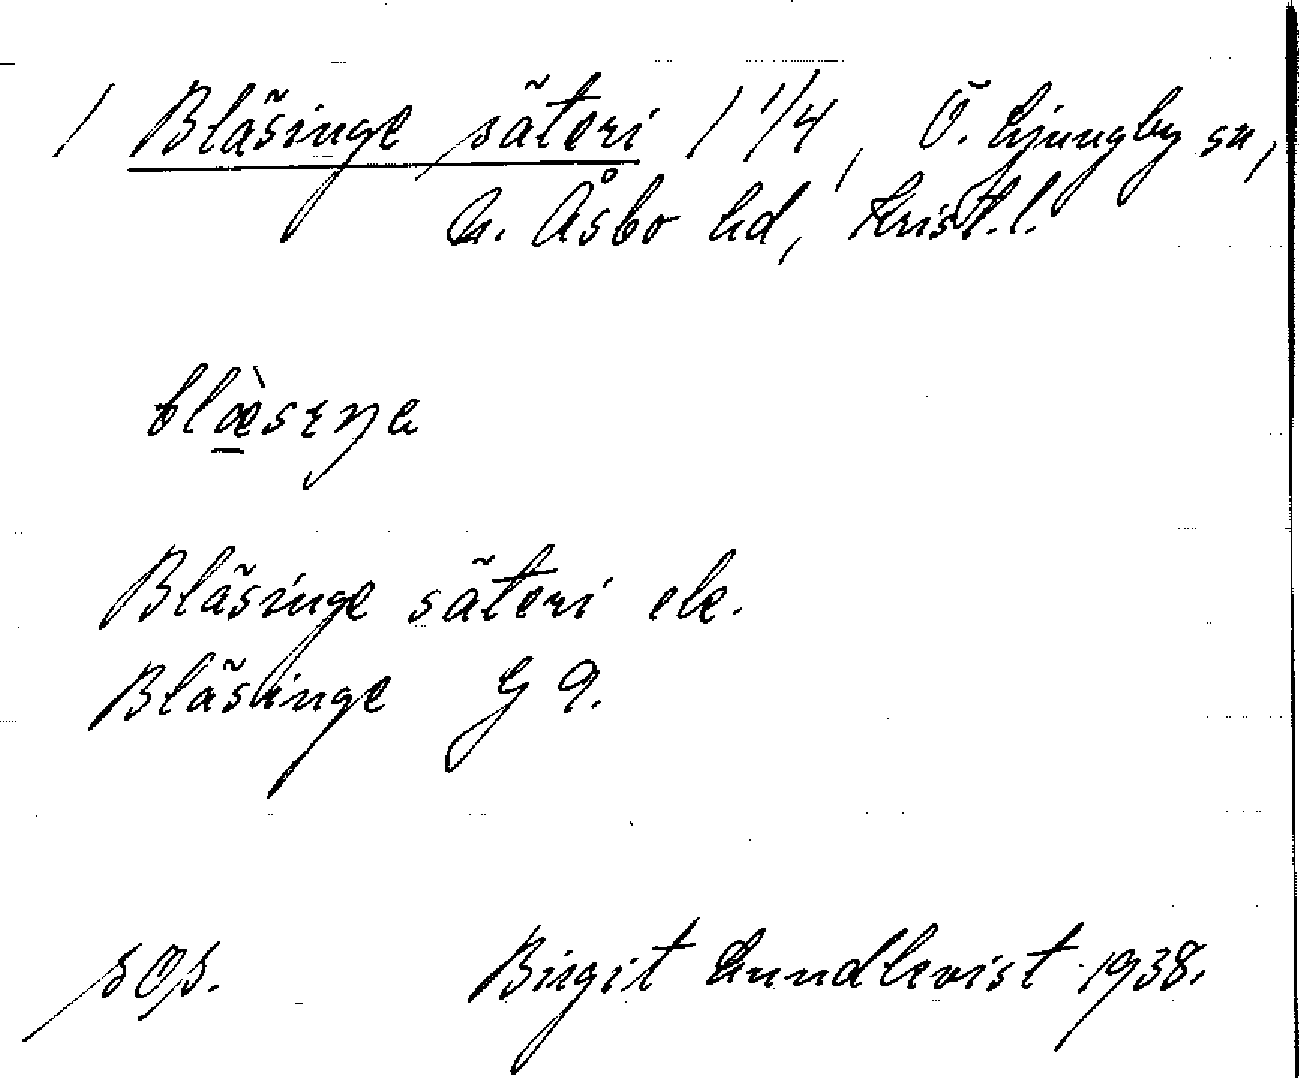 1 Bläsinge säteri 1 1/4, Ö. Ljungby sn,
N. Åsbo hd, Krist. l.
blæ̀sɪŋa
Bläsinge säteri ek.
Bläsinge G 9.
Birgit Lundkvist 1938.